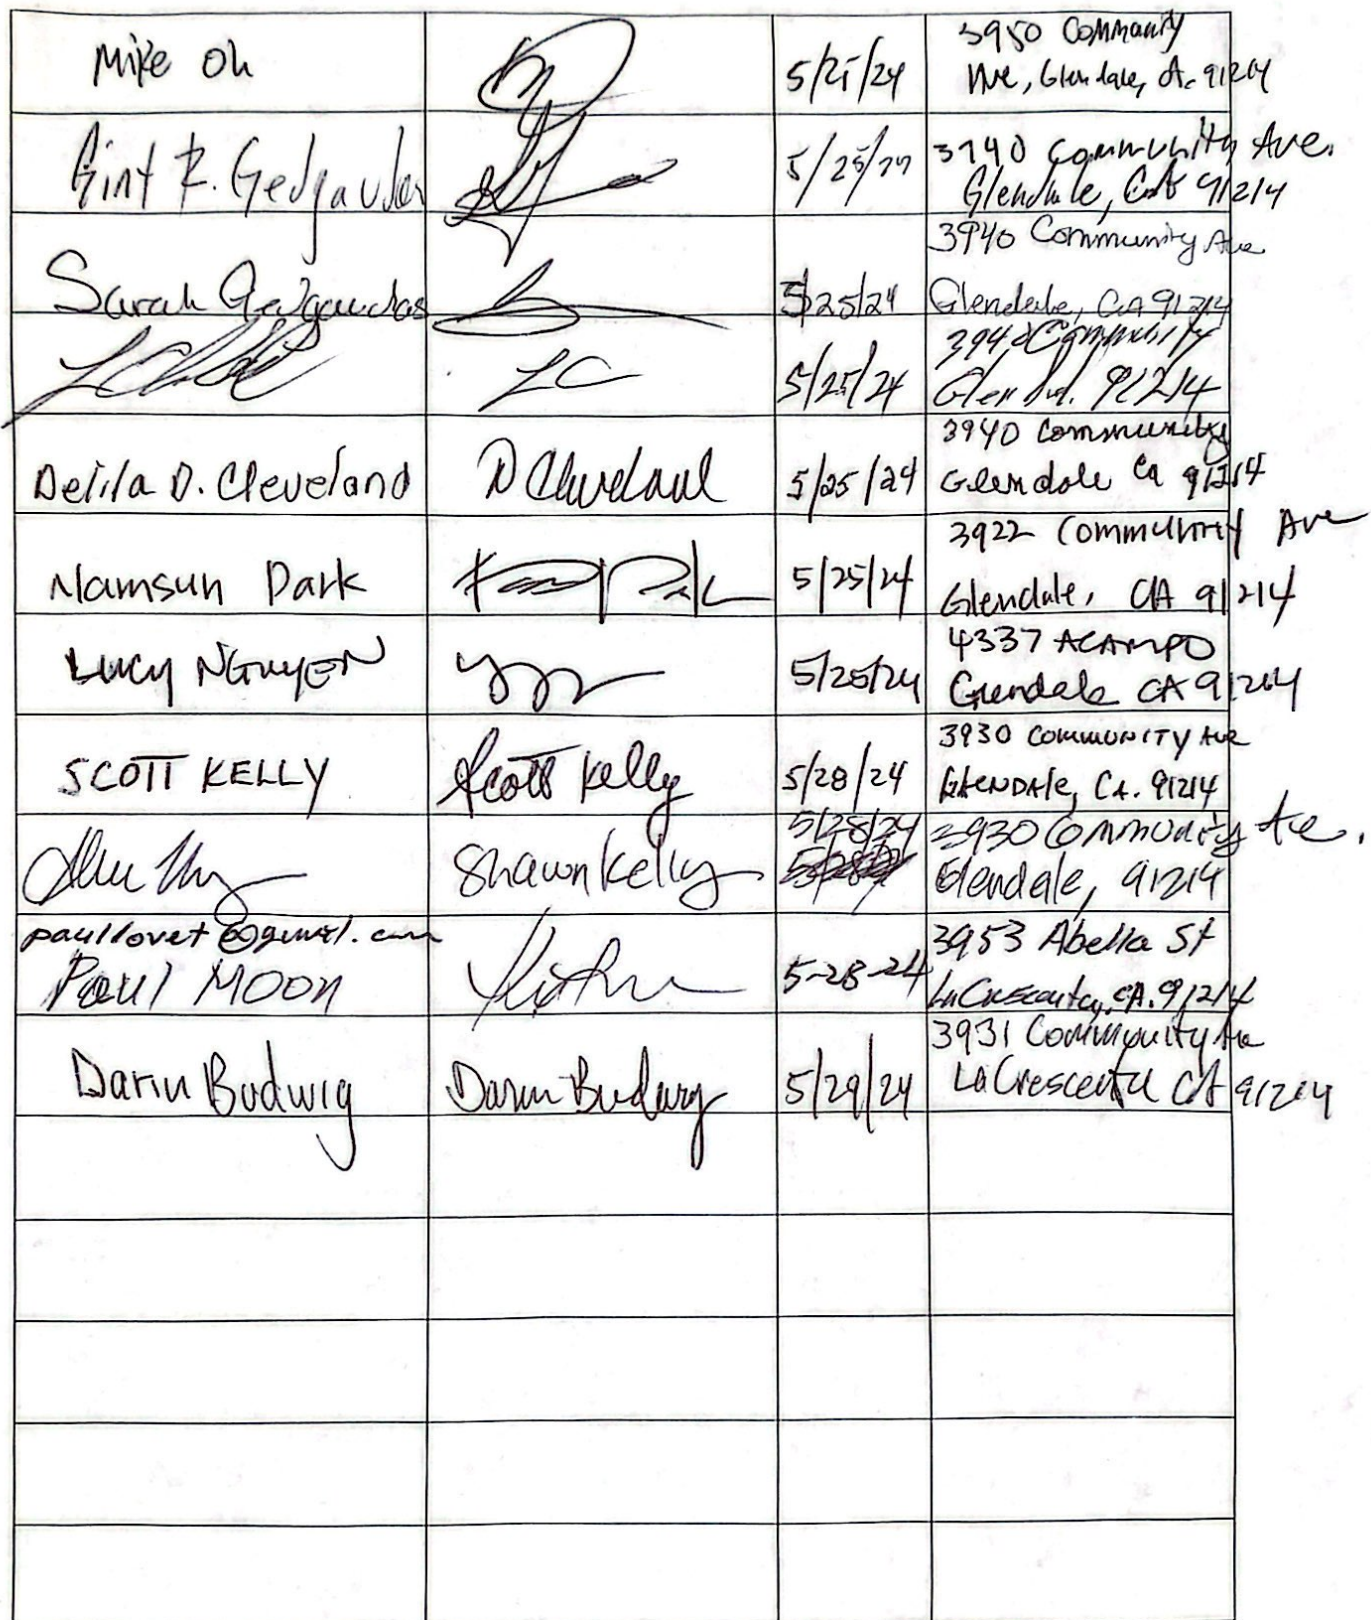 Mike Oh 5/25/24 3950 Community
Ave, Glendale, CA. 91214
Gint R. Gedgaudas 5/25/24 3940 Community Ave.
Glendale, CA 91214
Sarah Gedgaudas 5/25/24 3940 Community Ave
Glendale, CA 91214
LC 5/25/24 3940 Community
91214
Delila D. Cleveland D Cleveland 5/25/24 3940 Community
Glendale Ca 91214
Namsun Park 5/25/24 3922 Community Ave
Glendale, CA 91214
Lucy NGuyEN 5/25/24 4337 ACAMPO
Glendale CA 91214
SCOTT KELLY Scott Kelly 5/28/24 3930 COMMUNITY AVE
GLENDAlE, CA. 91214
Shawn Kelly 5/28/24 3930 Community Ave.
Glendale, 91214
paullovet@gmail.com
Paul MOON 5-28-24 3953 Abella St
La Crescenta, CA. 91214
Darin Budwig Darin Budwig 5/29/24 3931 Community Ave
La Crescenta CA 91214